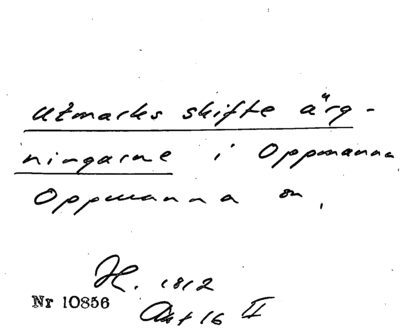 Utmarks skifte ärg-
ningarne i Oppmanna
Oppmanna sn.
H. 1812
Nr 10856
Akt 16 II